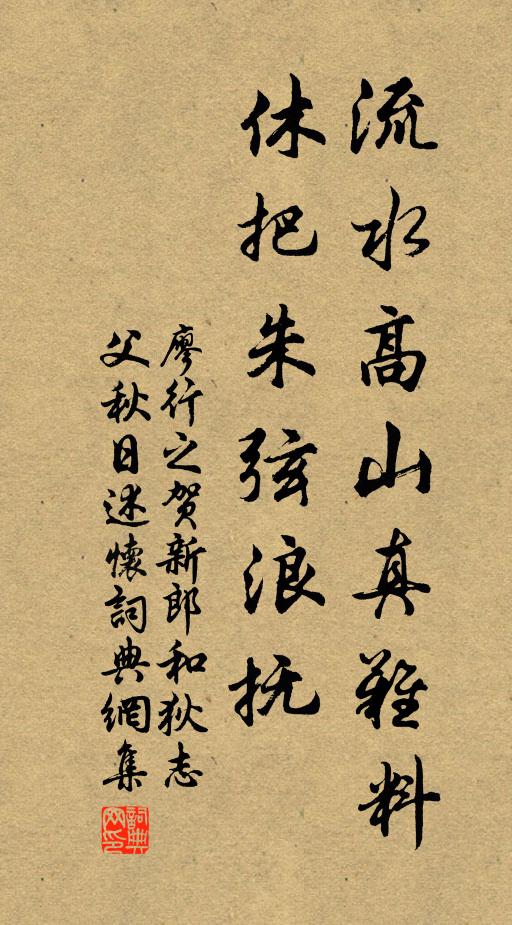 流水高山真難料
休把朱弦浪抚
廖行之贺新郎和狄志
父秋日述懷詞典網集
詞典网印